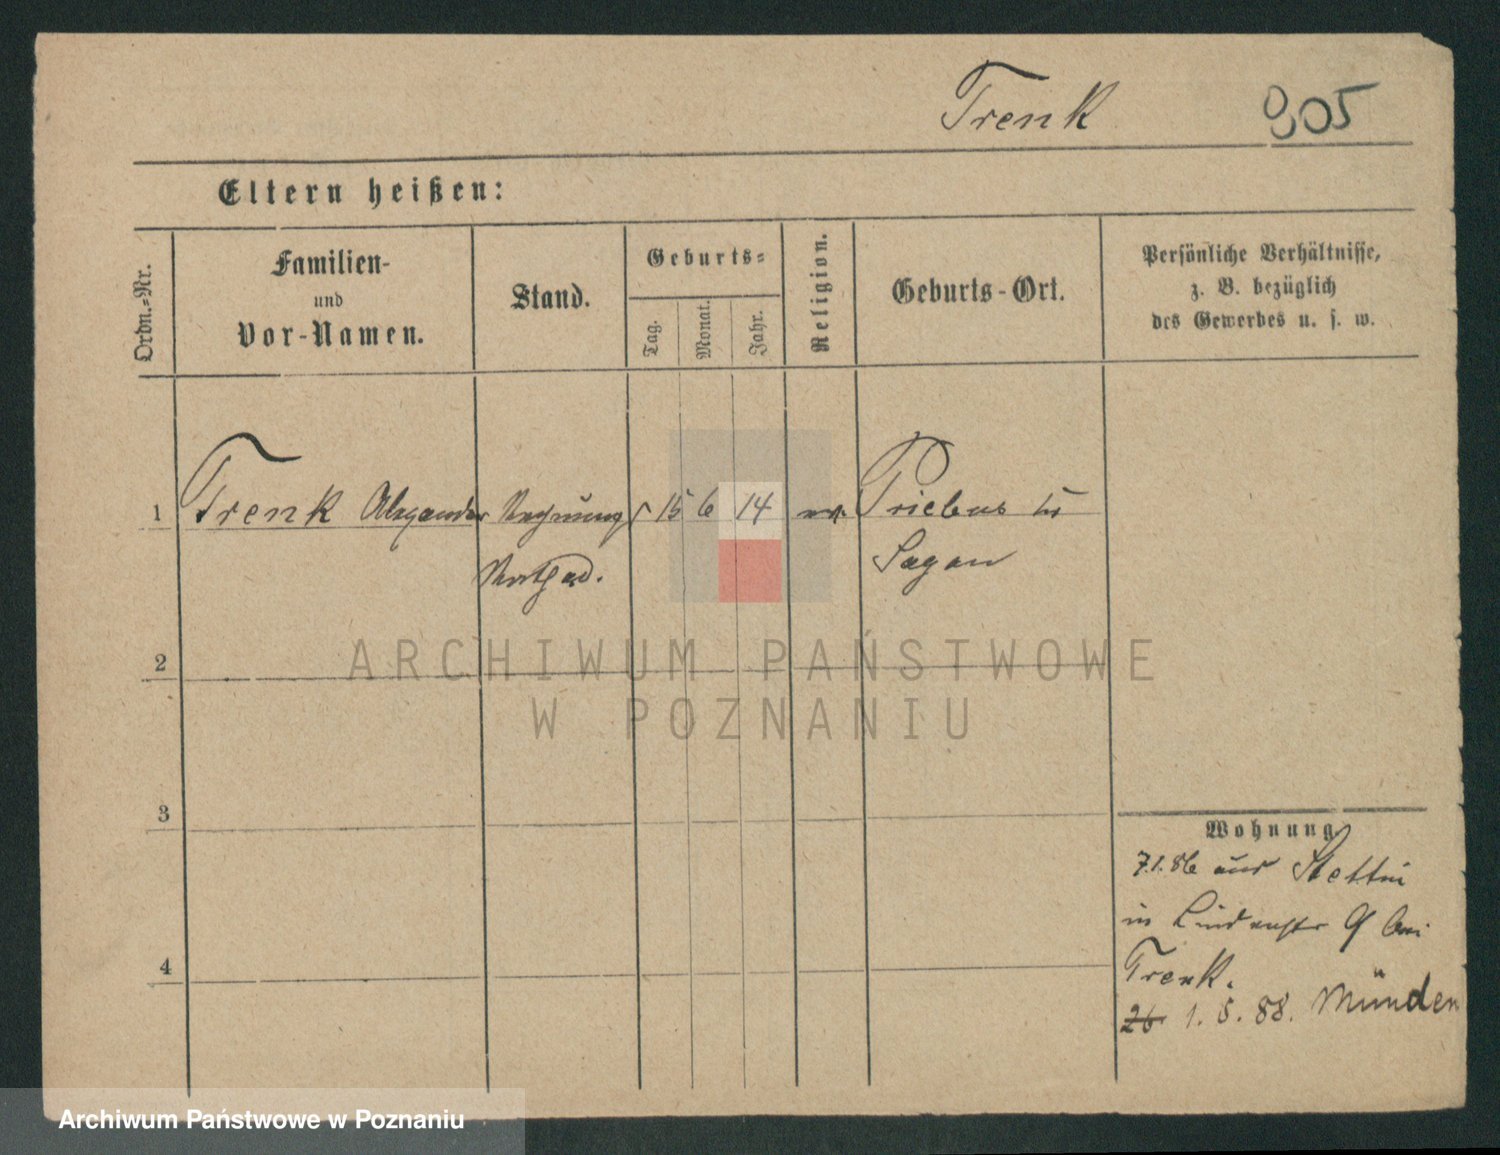 Trenk 905
Eltern heißen:
Ordn.-Nr.
Familien-
und
Vor-Namen.
Stand.
Geburts-
Tag.
Monat.
Jahr.
Religion.
Geburts-Ort.
Persönliche Verhältnisse,
z. B. bezüglich
des Gewerbes u. s. w.
1 Trenk Alexander Rechnungs 15 6 14 ev. Priebus
Sagan
2
3
4
Wohnung
7.1.86 aus Stettin
in Lindenstr 9 bei
Trenk.
26 1. 5. 88. Münden
ARCHIWUM PAŃSTWOWE
W POZNANIU
Archiwum Państwowe w Poznaniu